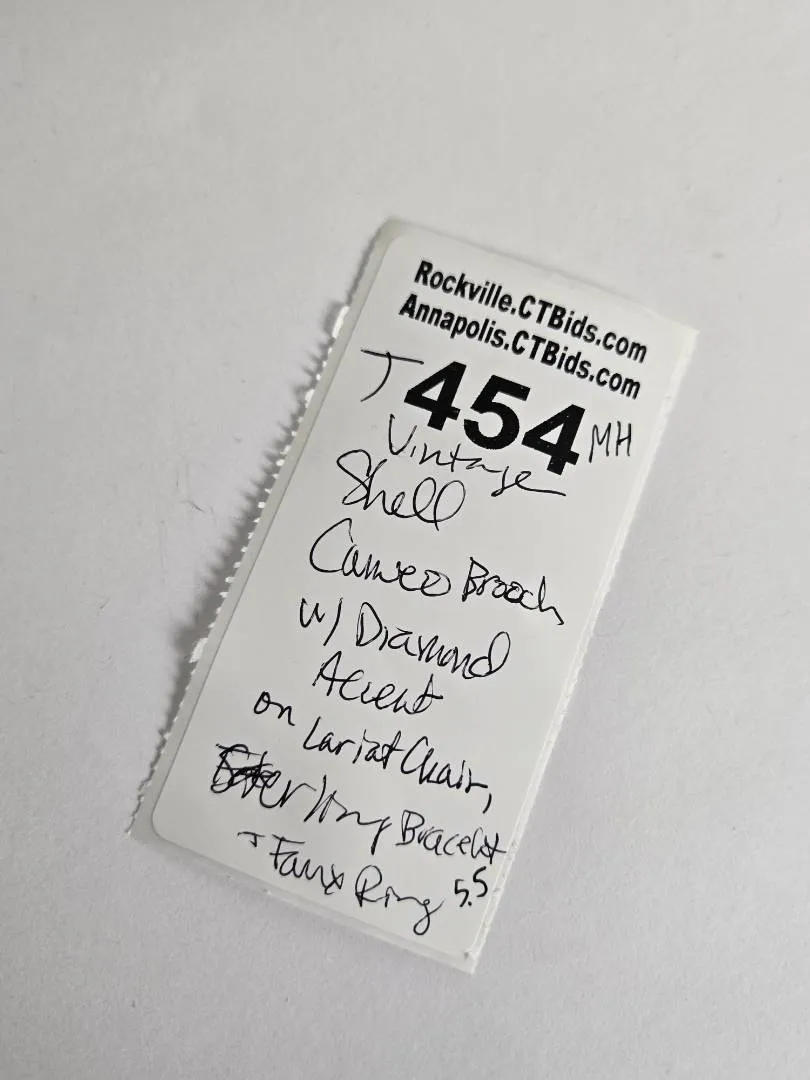 Rockville.CTBids.com
Annapolis.CTBids.com
J 454 MH
Vintage
Shell
Cameo Brooch
w/ Diamond
Accent
on Lariat Chain,
Sterling Bracelet
+ Faux Ring 5.5